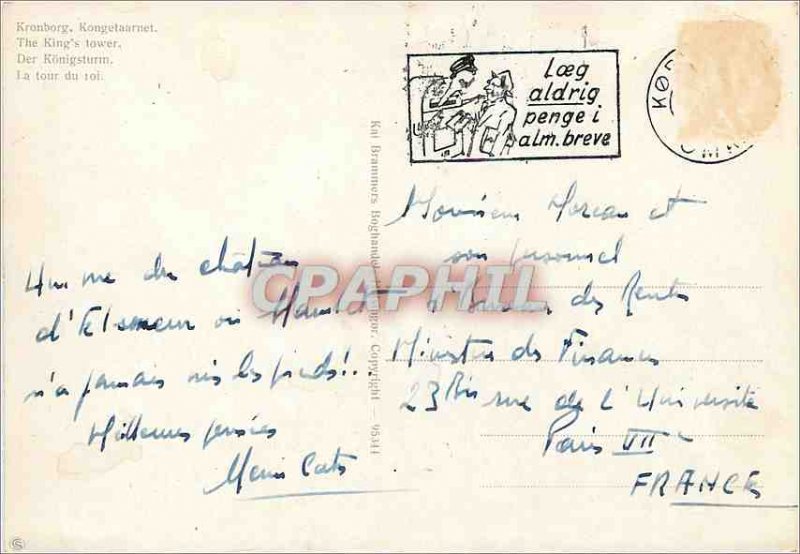 Kronborg, Kongetaarnet.
The King's tower.
Der Königsturm.
La tour du roi.
Læg
aldrig
penge i
alm. breve
KØB
OMK
Kai Brammers Boghandel, Copyright — 95344
CPAPHIL
Une vue du château
d'Elseneur où Hamlet
n'a jamais mis les pieds!..
Meilleures pensées
Monsieur Moreau et
son personnel
des Rentes
Ministère des Finances
23 Bis rue de l'Université
Paris VII e
FRANCE